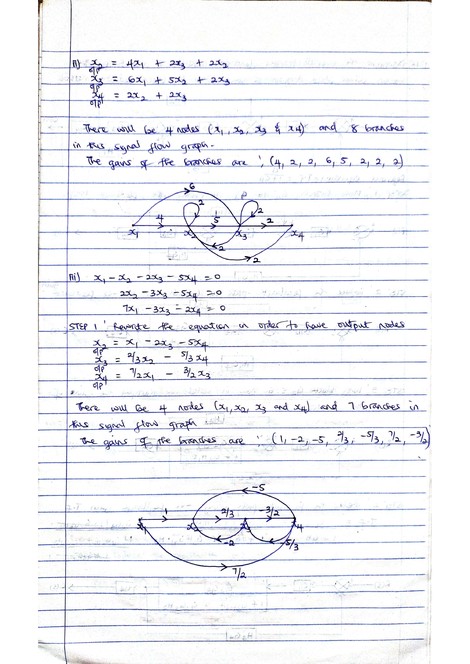 ii) x₂ = 4x₁ + 2x₃ + 2x₂
o/p
x₃ = 6x₁ + 5x₂ + 2x₃
o/p
x₄ = 2x₂ + 2x₃
o/p
There will be 4 nodes (x₁, x₂, x₃ & x₄) and 8 branches
in this signal flow graph.
The gains of the branches are : (4, 2, 2, 6, 5, 2, 2, 2)
6
2 2
4 5 2
x₁ x₂ x₃ x₄
2
2
iii) x₁ - x₂ - 2x₃ - 5x₄ = 0
2x₂ - 3x₃ - 5x₄ = 0
7x₁ - 3x₃ - 2x₄ = 0
STEP 1 : Rewrite the equation in order to have output nodes
x₂ = x₁ - 2x₃ - 5x₄
o/p
x₃ = 2/3x₂ - 5/3x₄
o/p
x₄ = 7/2x₁ - 3/2x₃
o/p
There will be 4 nodes (x₁, x₂, x₃ and x₄) and 7 branches in
this signal flow graph
The gains of the branches are : (1, -2, -5, 2/3, -5/3, 7/2, -3/2)
-5
1 2/3 -3/2
x₁ x₂ x₃ x₄
-2 -5/3
7/2